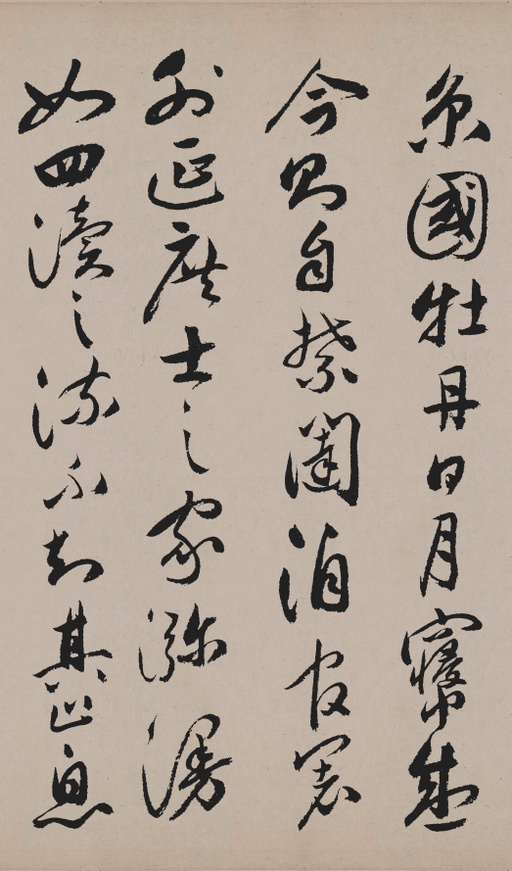 京國牡丹日月寖盛
今則自禁闥洎官署
外延庶士之家瀰漫
如四瀆之流不知其止息